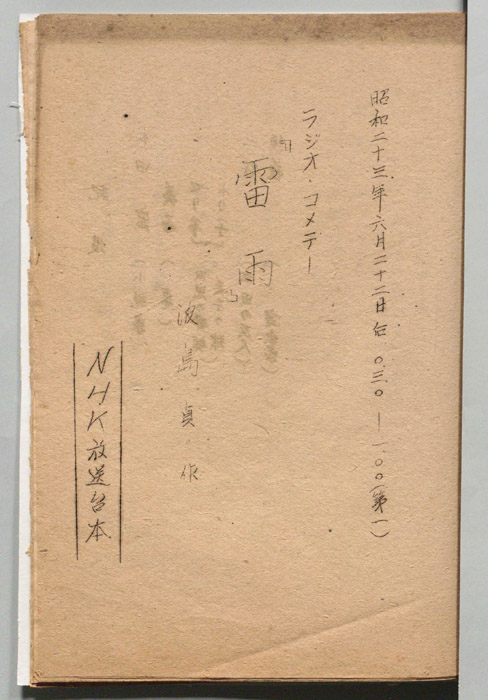 昭和二十三年六月二十二日后〇.三〇―一.〇〇(第一)
ラジオ・コメデー
『雷雨』
波島貞作
NHK放送台本